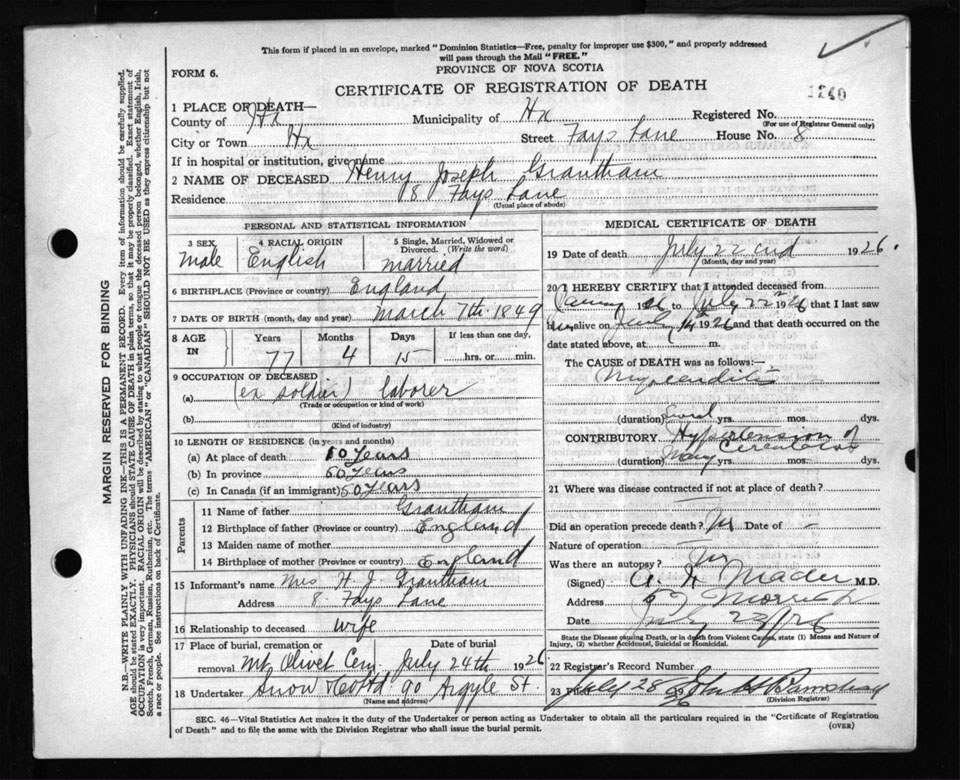 This form if placed in an envelope, marked "Dominion Statistics—Free, penalty for improper use $300," and properly addressed
will pass through the Mail "FREE."
PROVINCE OF NOVA SCOTIA
FORM 6.
CERTIFICATE OF REGISTRATION OF DEATH
1240
1 PLACE OF DEATH—
County of Hx Municipality of Hx Registered No.
(For use of Registrar General only)
City or Town Hx Street Fays Lane House No. 8
If in hospital or institution, give name
2 NAME OF DECEASED Henry Joseph Grantham
Residence 8 Fays Lane
(Usual place of abode)
PERSONAL AND STATISTICAL INFORMATION
3 SEX 4 RACIAL ORIGIN 5 Single, Married, Widowed or
Divorced. (Write the word)
Male English married
6 BIRTHPLACE (Province or country) England
7 DATE OF BIRTH (month, day and year) March 7th 1849
8 AGE IN Years Months Days If less than one day,
77 4 15 hrs. or min.
9 OCCUPATION OF DECEASED
(a) (ex soldier) laborer
(Trade or occupation or kind of work)
(b)
(Kind of industry)
10 LENGTH OF RESIDENCE (in years and months)
(a) At place of death 50 years
(b) In province 50 years
(c) In Canada (if an immigrant) 50 years
Parents
11 Name of father Grantham
12 Birthplace of father (Province or country) England
13 Maiden name of mother
14 Birthplace of mother (Province or country) England
15 Informant's name Mrs H. J. Grantham
Address 8 Fays Lane
16 Relationship to deceased wife
17 Place of burial, cremation or Date of burial
removal Mt Olivet Cem July 24th 1926
18 Undertaker Snow & Co Ltd 90 Argyle St.
(Name and address)
MEDICAL CERTIFICATE OF DEATH
19 Date of death July 22 1926.
(Month, day and year)
20 I HEREBY CERTIFY that I attended deceased from
to July 22 1926 that I last saw
alive on 1926 and that death occurred on the
date stated above, at m.
The CAUSE of DEATH was as follows:—
Myocarditis
(duration) Several yrs. mos. dys.
CONTRIBUTORY
(duration) Many yrs. mos. dys.
21 Where was disease contracted if not at place of death?
Did an operation precede death? No Date of -
Nature of operation
Was there an autopsy?
(Signed) Mader M.D.
Address 57 Morris
Date July 23/26
State the Disease causing Death, or in death from Violent Causes, state (1) Means and Nature of
Injury, (2) whether Accidental, Suicidal or Homicidal.
22 Registrar's Record Number
23 Filed July 28 1926
(Division Registrar)
SEC. 46—Vital Statistics Act makes it the duty of the Undertaker or person acting as Undertaker to obtain all the particulars required in the "Certificate of Registration
of Death" and to file the same with the Division Registrar who shall issue the burial permit. (OVER)
MARGIN RESERVED FOR BINDING
N.B.—WRITE PLAINLY WITH UNFADING INK—THIS IS A PERMANENT RECORD. Every item of information should be carefully supplied.
AGE should be stated EXACTLY. PHYSICIANS should STATE CAUSE OF DEATH in plain terms, so that it may be properly classified. Exact statement of
OCCUPATION is very important. RACIAL ORIGIN will be described by stating to what people or tongue the deceased person belonged, whether English, Irish,
Scotch, French, German, Russian, Ruthenian, etc. The terms "AMERICAN" or "CANADIAN" SHOULD NOT BE USED as they express citizenship but not
a race or people. See instructions on back of Certificate.